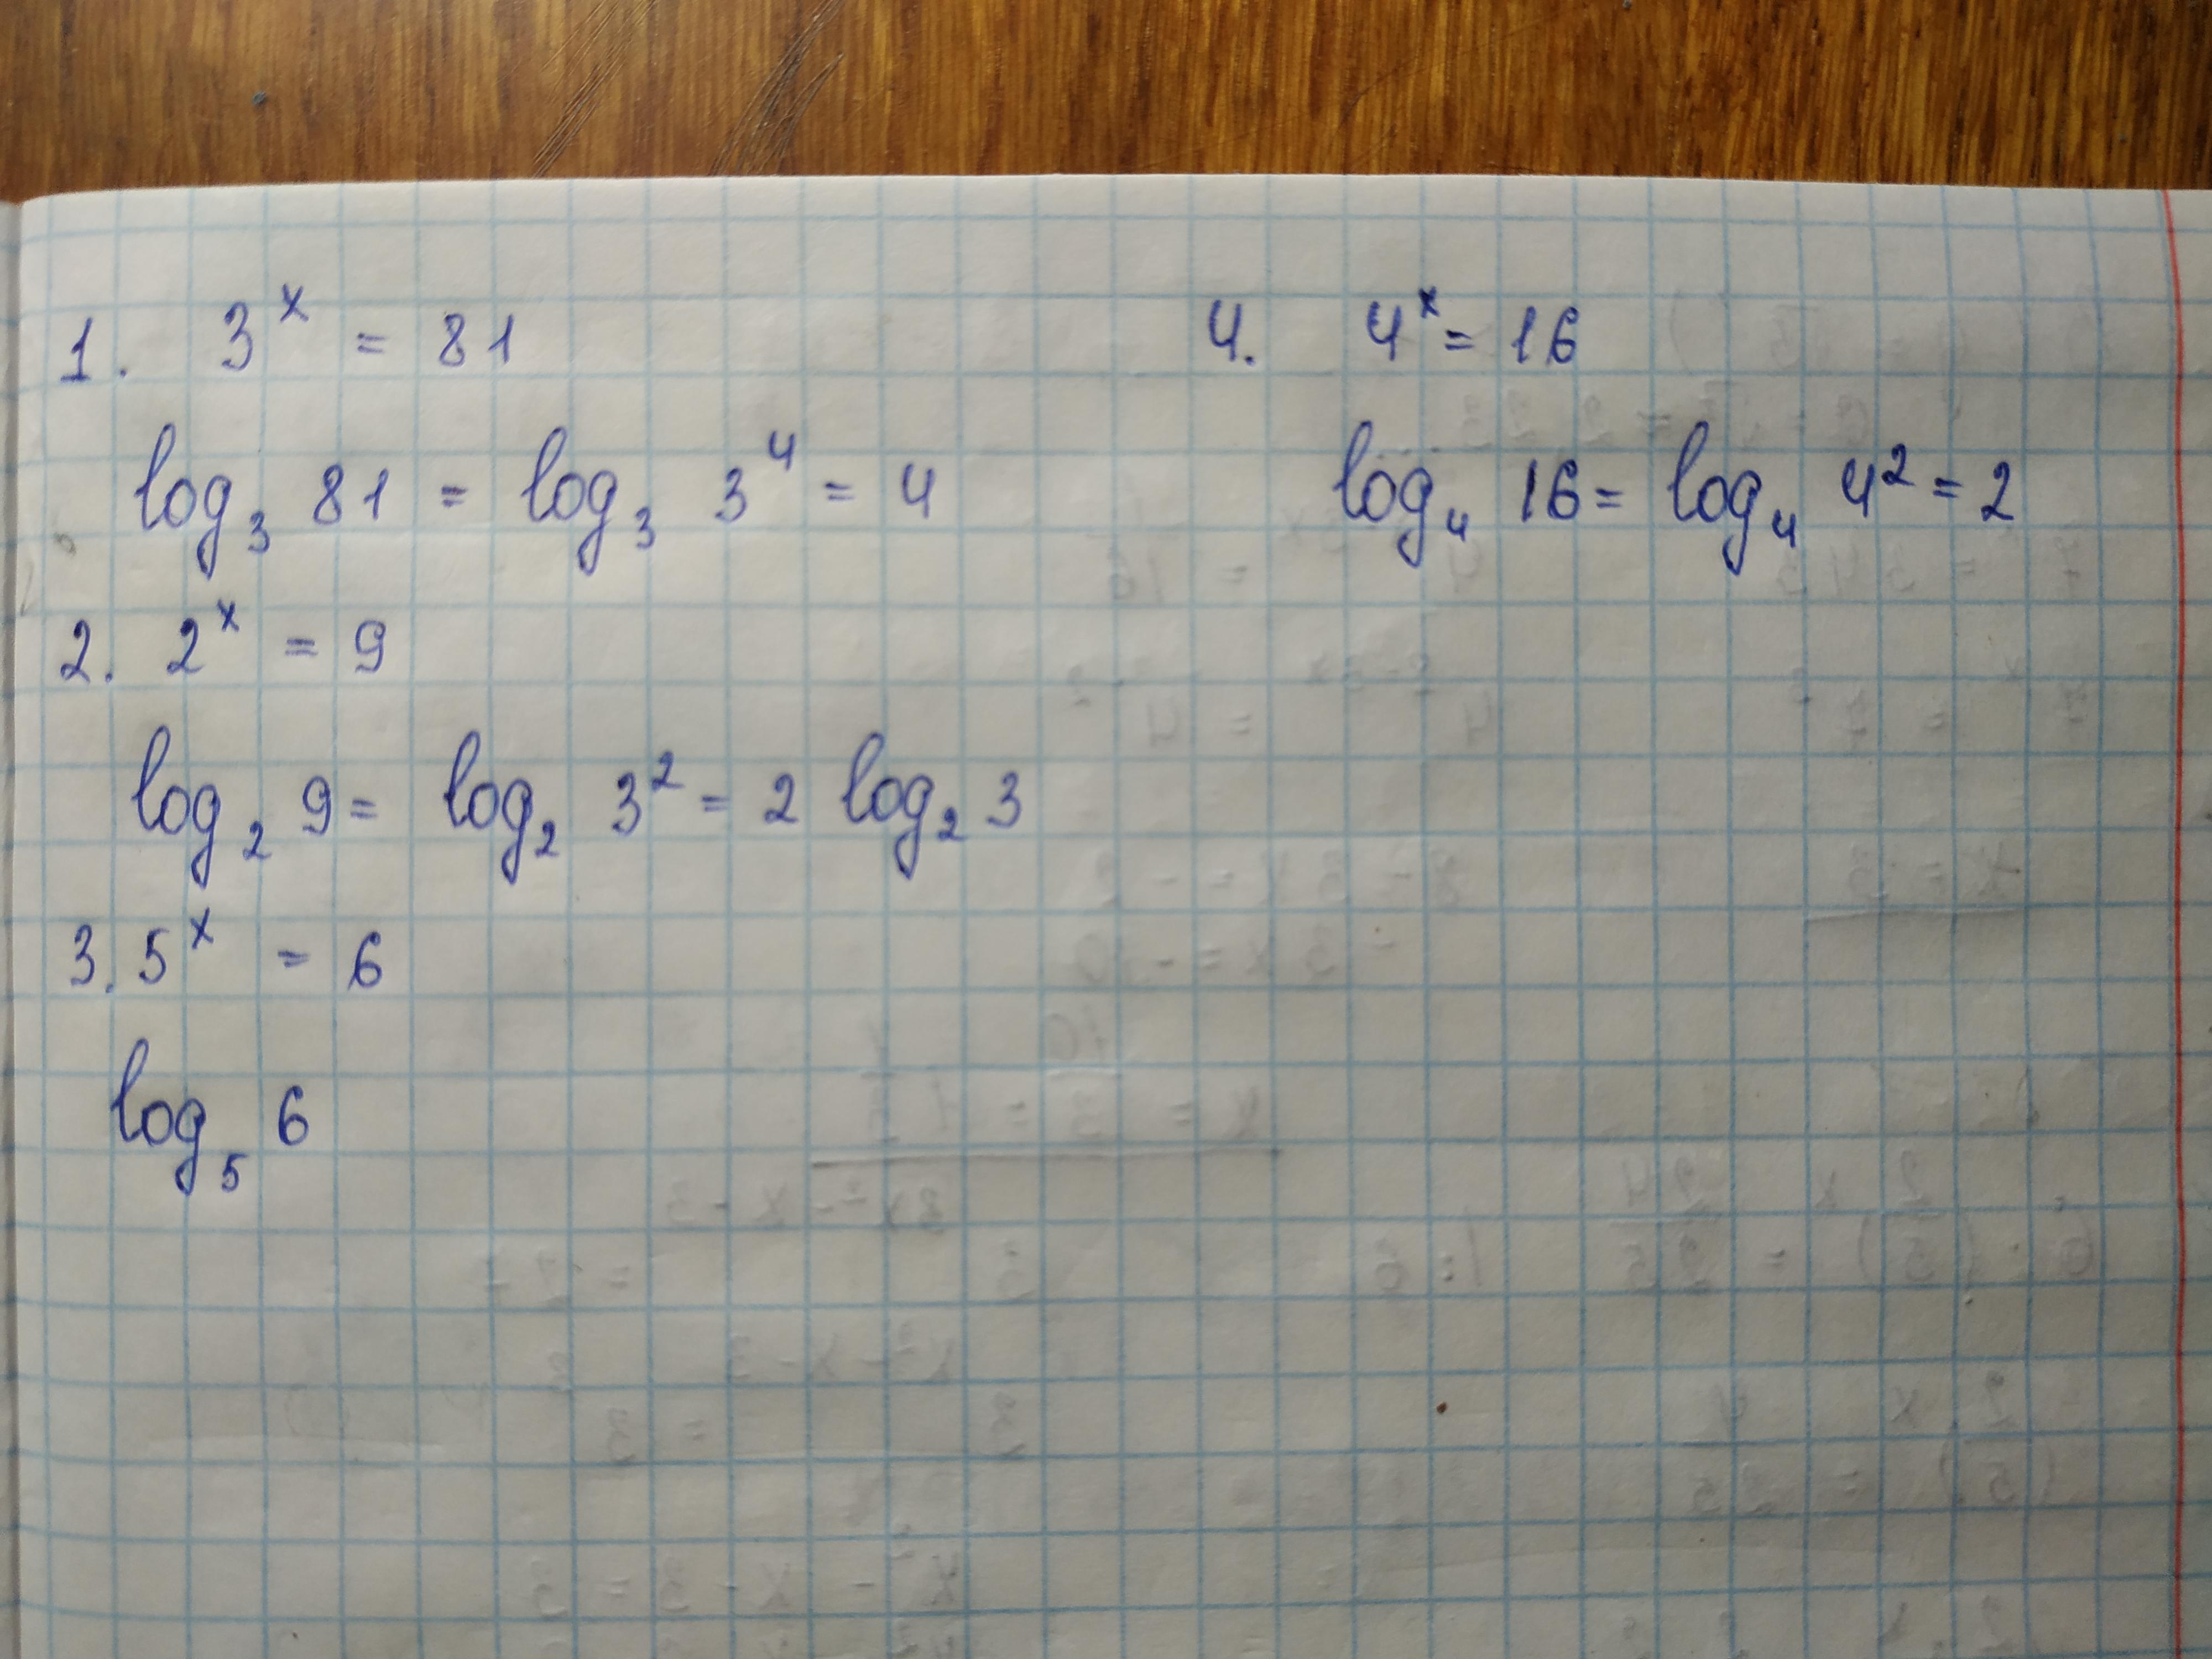 1. 3^x = 81
log₃ 81 = log₃ 3⁴ = 4
2. 2^x = 9
log₂ 9 = log₂ 3² = 2 log₂ 3
3. 5^x = 6
log₅ 6
4. 4^x = 16
log₄ 16 = log₄ 4² = 2